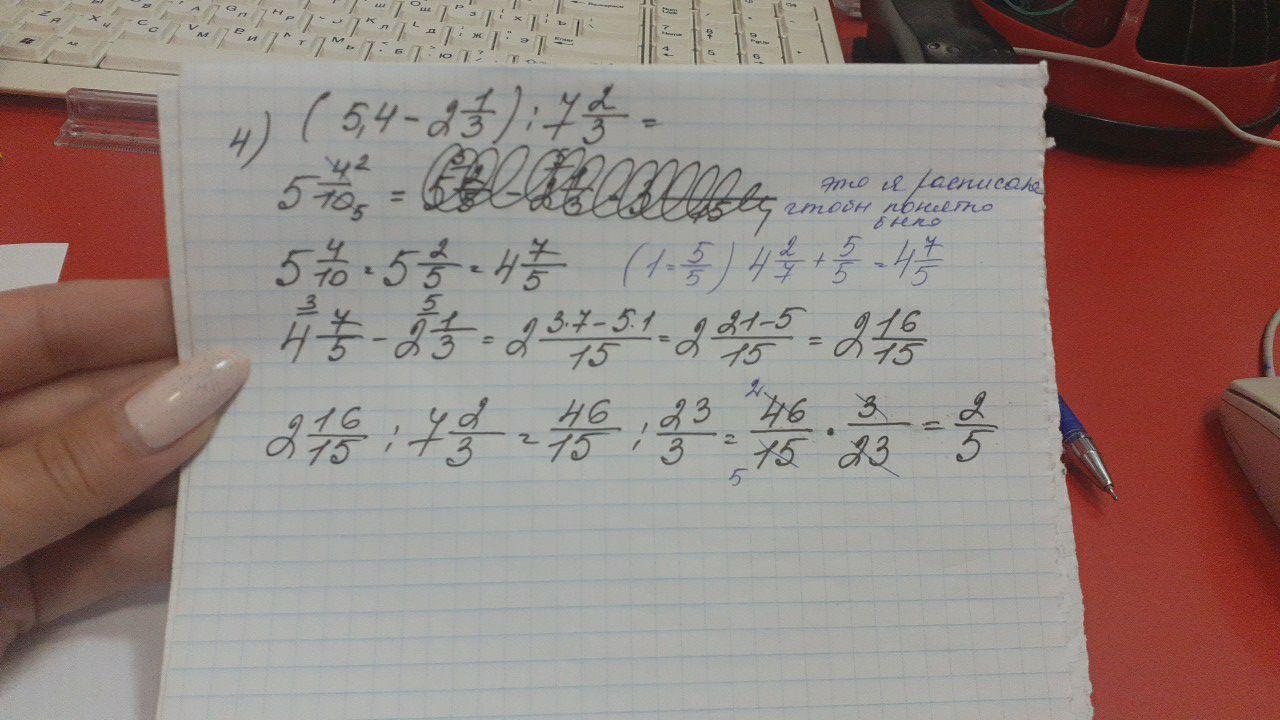 4) (5,4 - 2 1/3) : 7 2/3 =
5 4/10 2 5 =
это я расписала
чтобы понятно
было
5 4/10 = 5 2/5 = 4 7/5 (1 = 5/5) 4 2/7 + 5/5 = 4 7/5
3 5
4 7/5 - 2 1/3 = 2 3·7-5·1/15 = 2 21-5/15 = 2 16/15
2 16/15 : 7 2/3 = 46/15 : 23/3 = 2 46/15 5 · 3/23 = 2/5